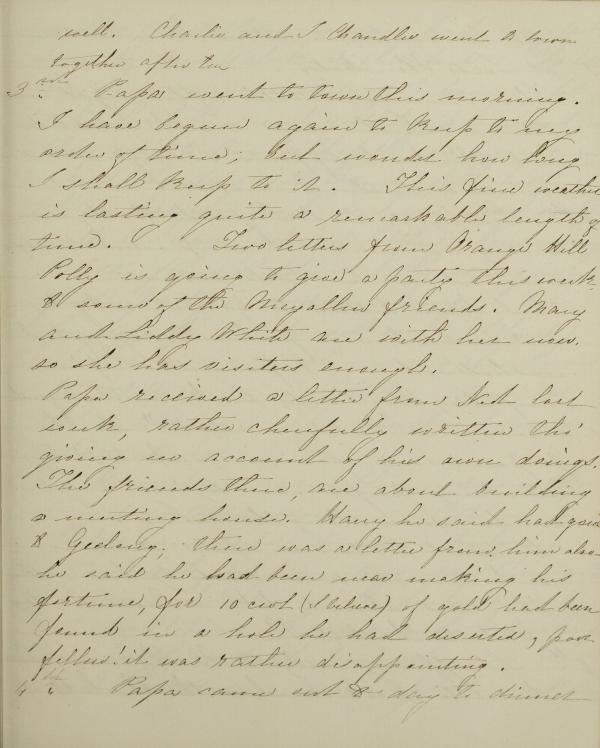 well. Charlie and J Chandler went to town
together after tea
3rd. Papa went to town this morning.
I have begun again to keep to my
order of time; but wonder how long
I shall keep to it. This fine weather
is lasting quite a remarkable length of
time. Two letters from Orange Hill
Polly is going to give a party this week
to some of the friends. Mary
and Liddy White are with her now.
so she has visitors enough.
Papa received a letter from Ned last
week, rather cheerfully written tho'
giving no account of his own doings.
The friends there, are about building
a meeting house. Harry he said had gone
to Geelong; there was a letter from him also
he said he had been near making his
fortune, for 10 cwt (I believe) of gold had been
found in a hole he had deserted, poor
fellow! it was rather disappointing.
4th. Papa came out to day to dinner